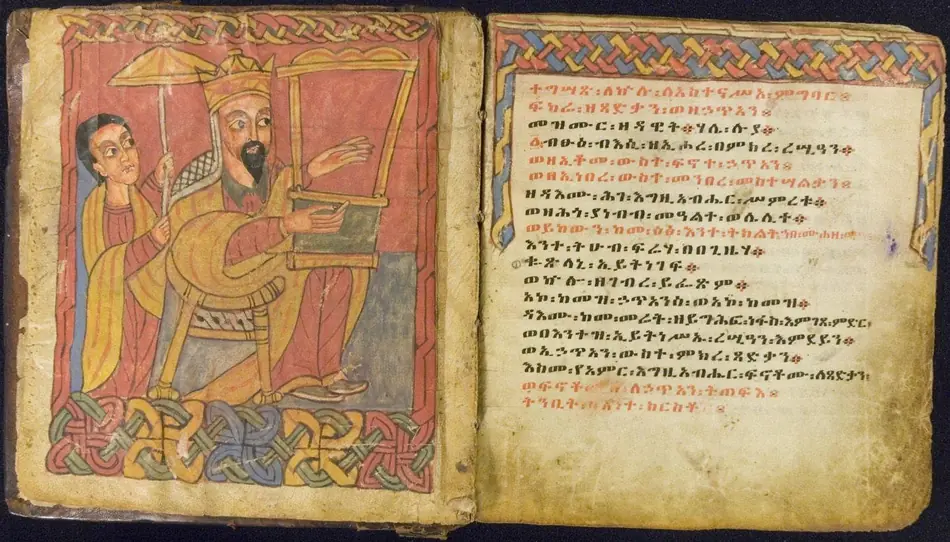 ተግሣጽ፡ ለኵሉ፡ ሰእከተናሥእ፡ ምግባር ፨
ፍካሬ፡ ዘጻድቃን፡ ወዘኃጥኣን ፨
መዝሙር፡ ዘዳዊት ፨ ሃሌ፡ ሉያ ፨
ብፁዕ፡ ብእሲ፡ ዘኢሖረ፡ በምክረ፡ ረሢዓን ፨
ወዘኢቆመ፡ ውስተ፡ ፍኖተ፡ ኃጥኣን ፨
ወዘኢነበረ፡ ውስተ፡ መንበረ፡ መስተሣልቃን ፨
ዘዳእሙ፡ ሕገ፡ እግዚአብሔር፡ ሥምረቱ ፨
ወዘሕጎ፡ ያነብብ፡ መዓልተ፡ ወሌሊተ ፨
ወይከውን፡ ከመ፡ ዕፅ፡ እንተ፡ ትክልት፡ ኀበ፡ ሙሐዘ፡ ማይ
እንተ፡ ትሁብ፡ ፍሬሃ፡ በበጊዜሃ ፨
ቈጽላኒ፡ ኢይትነገፍ ፨
ወኵሉ፡ ዘገብረ፡ ይፌጽም ፨
አኮ፡ ከመዝ፡ ኃጥኣንሰ፡ ወአኮ፡ ከመዝ ፨
ዳእሙ፡ ከመ፡ መሬት፡ ዘይግሕፎ፡ ነፋስ፡ እምገጸ፡ ምድር፡
ወበእንተዝ፡ ኢይትነሥኡ፡ ረሢዓን፡ እምደይን ፨
ወኢኃጥኣን፡ ውስተ፡ ምክረ፡ ጻድቃን ፨
እስመ፡ የአምር፡ እግዚአብሔር፡ ፍኖቶሙ፡ ለጻድቃን
ወፍኖቶሙ፡ ለኃጥኣን፡ ትጠፍእ ፨
ትንቢት፡ በእንተ፡ ክርስቶስ ፨